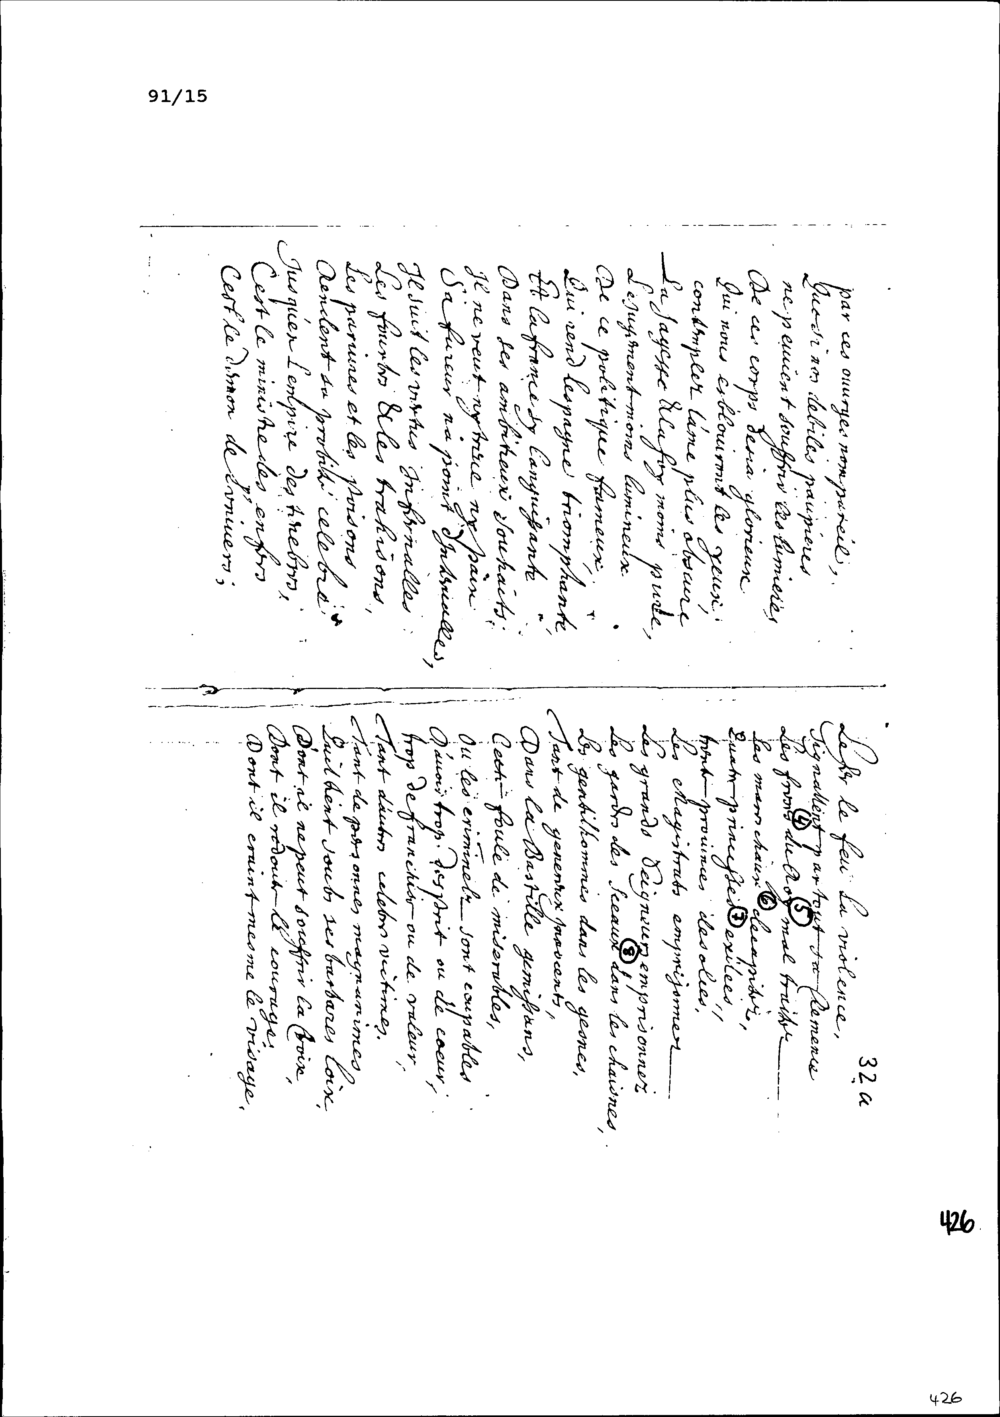 91/15
par ces ouurages nompareil,
Que si nos debiles paupieres
ne peuuent souffrir les lumieres
De ces corps desia glorieux
Qui nous esblouiront les yeux,
contempler l'ame plus obscure
La sagesse & la foy moins pure,
Le Jugement moins lumineux
De ce politique fameux
Qui rend lespagne triomphante
Et la france sy languissante
Dans ses ambitieux souhaits
Il ne veut ny treue ny paix
Sa fureur na point dInterualles,
Il suit les vertus Infernalles
Les fourbes & les trahisons,
Les pariures et les poisons
Rendent sa probité celebre
Jusqu'en l'empire des tenebres,
Cest le ministre des enfers
Cest le demon de lvniuers;
32.a
Le fer le feu la violence,
Signallent par tout sa Clemence
Les freres 4 du Roy 5 mal traitez
Les mareschaux 6 decapitez,
Quatre princesses 7 exilées,
trente prouinces desolées,
Les Magistrats emprisonnez
Les grands seigneurs emprisonnez
Les gardes des sceaux 8 dans les chaisnes,
Les gentilhommes dans les gesnes,
Tant de genereux
Dans la Bastille gemissans,
Ceste foule de miserables,
Ou les criminels sont coupables
D'auoir trop desprit ou de coeur,
trop de franchise ou de valeur,
Tant dautres celebres victimes,
Tant de personnes magnanimes
Quil tient soubs ses barbares loix,
Dont il ne peut souffrir la voix,
Dont il redoute le courage,
Dont il craint mesme le visage,
426
426